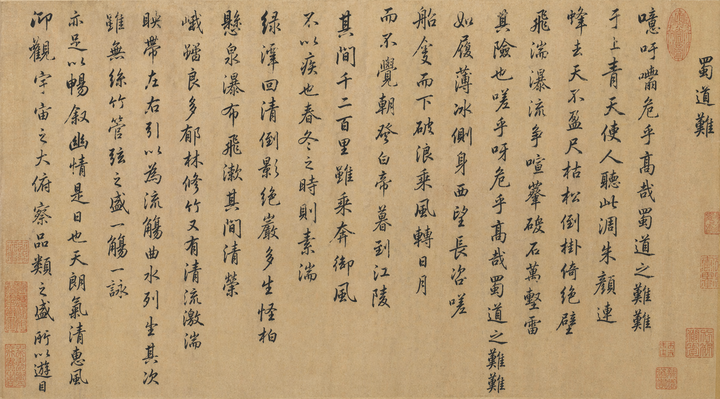 蜀道難
噫吁嚱危乎高哉蜀道之難難
于上青天使人聽此凋朱顏連
峰去天不盈尺枯松倒掛倚絕壁
飛湍瀑流爭喧石萬壑雷
其險也嗟乎呀危乎高哉蜀道之難難
如履薄冰側身西望長咨嗟
船而下破浪乘風轉日月
而不覺朝發白帝暮到江陵
其間千二百里雖乘奔御風
不以疾也春冬之時則素湍
绿潭回清倒影絕巖多生怪柏
懸泉瀑布飛漱其間清榮
峨良多郁林修竹又有清流激湍
映帶左右引以為流觴曲水列坐其次
雖無絲竹管弦之盛一觴一詠
亦足以暢敘幽情是日也天朗氣清惠風
仰觀宇宙之大俯察品類之盛所以遊目